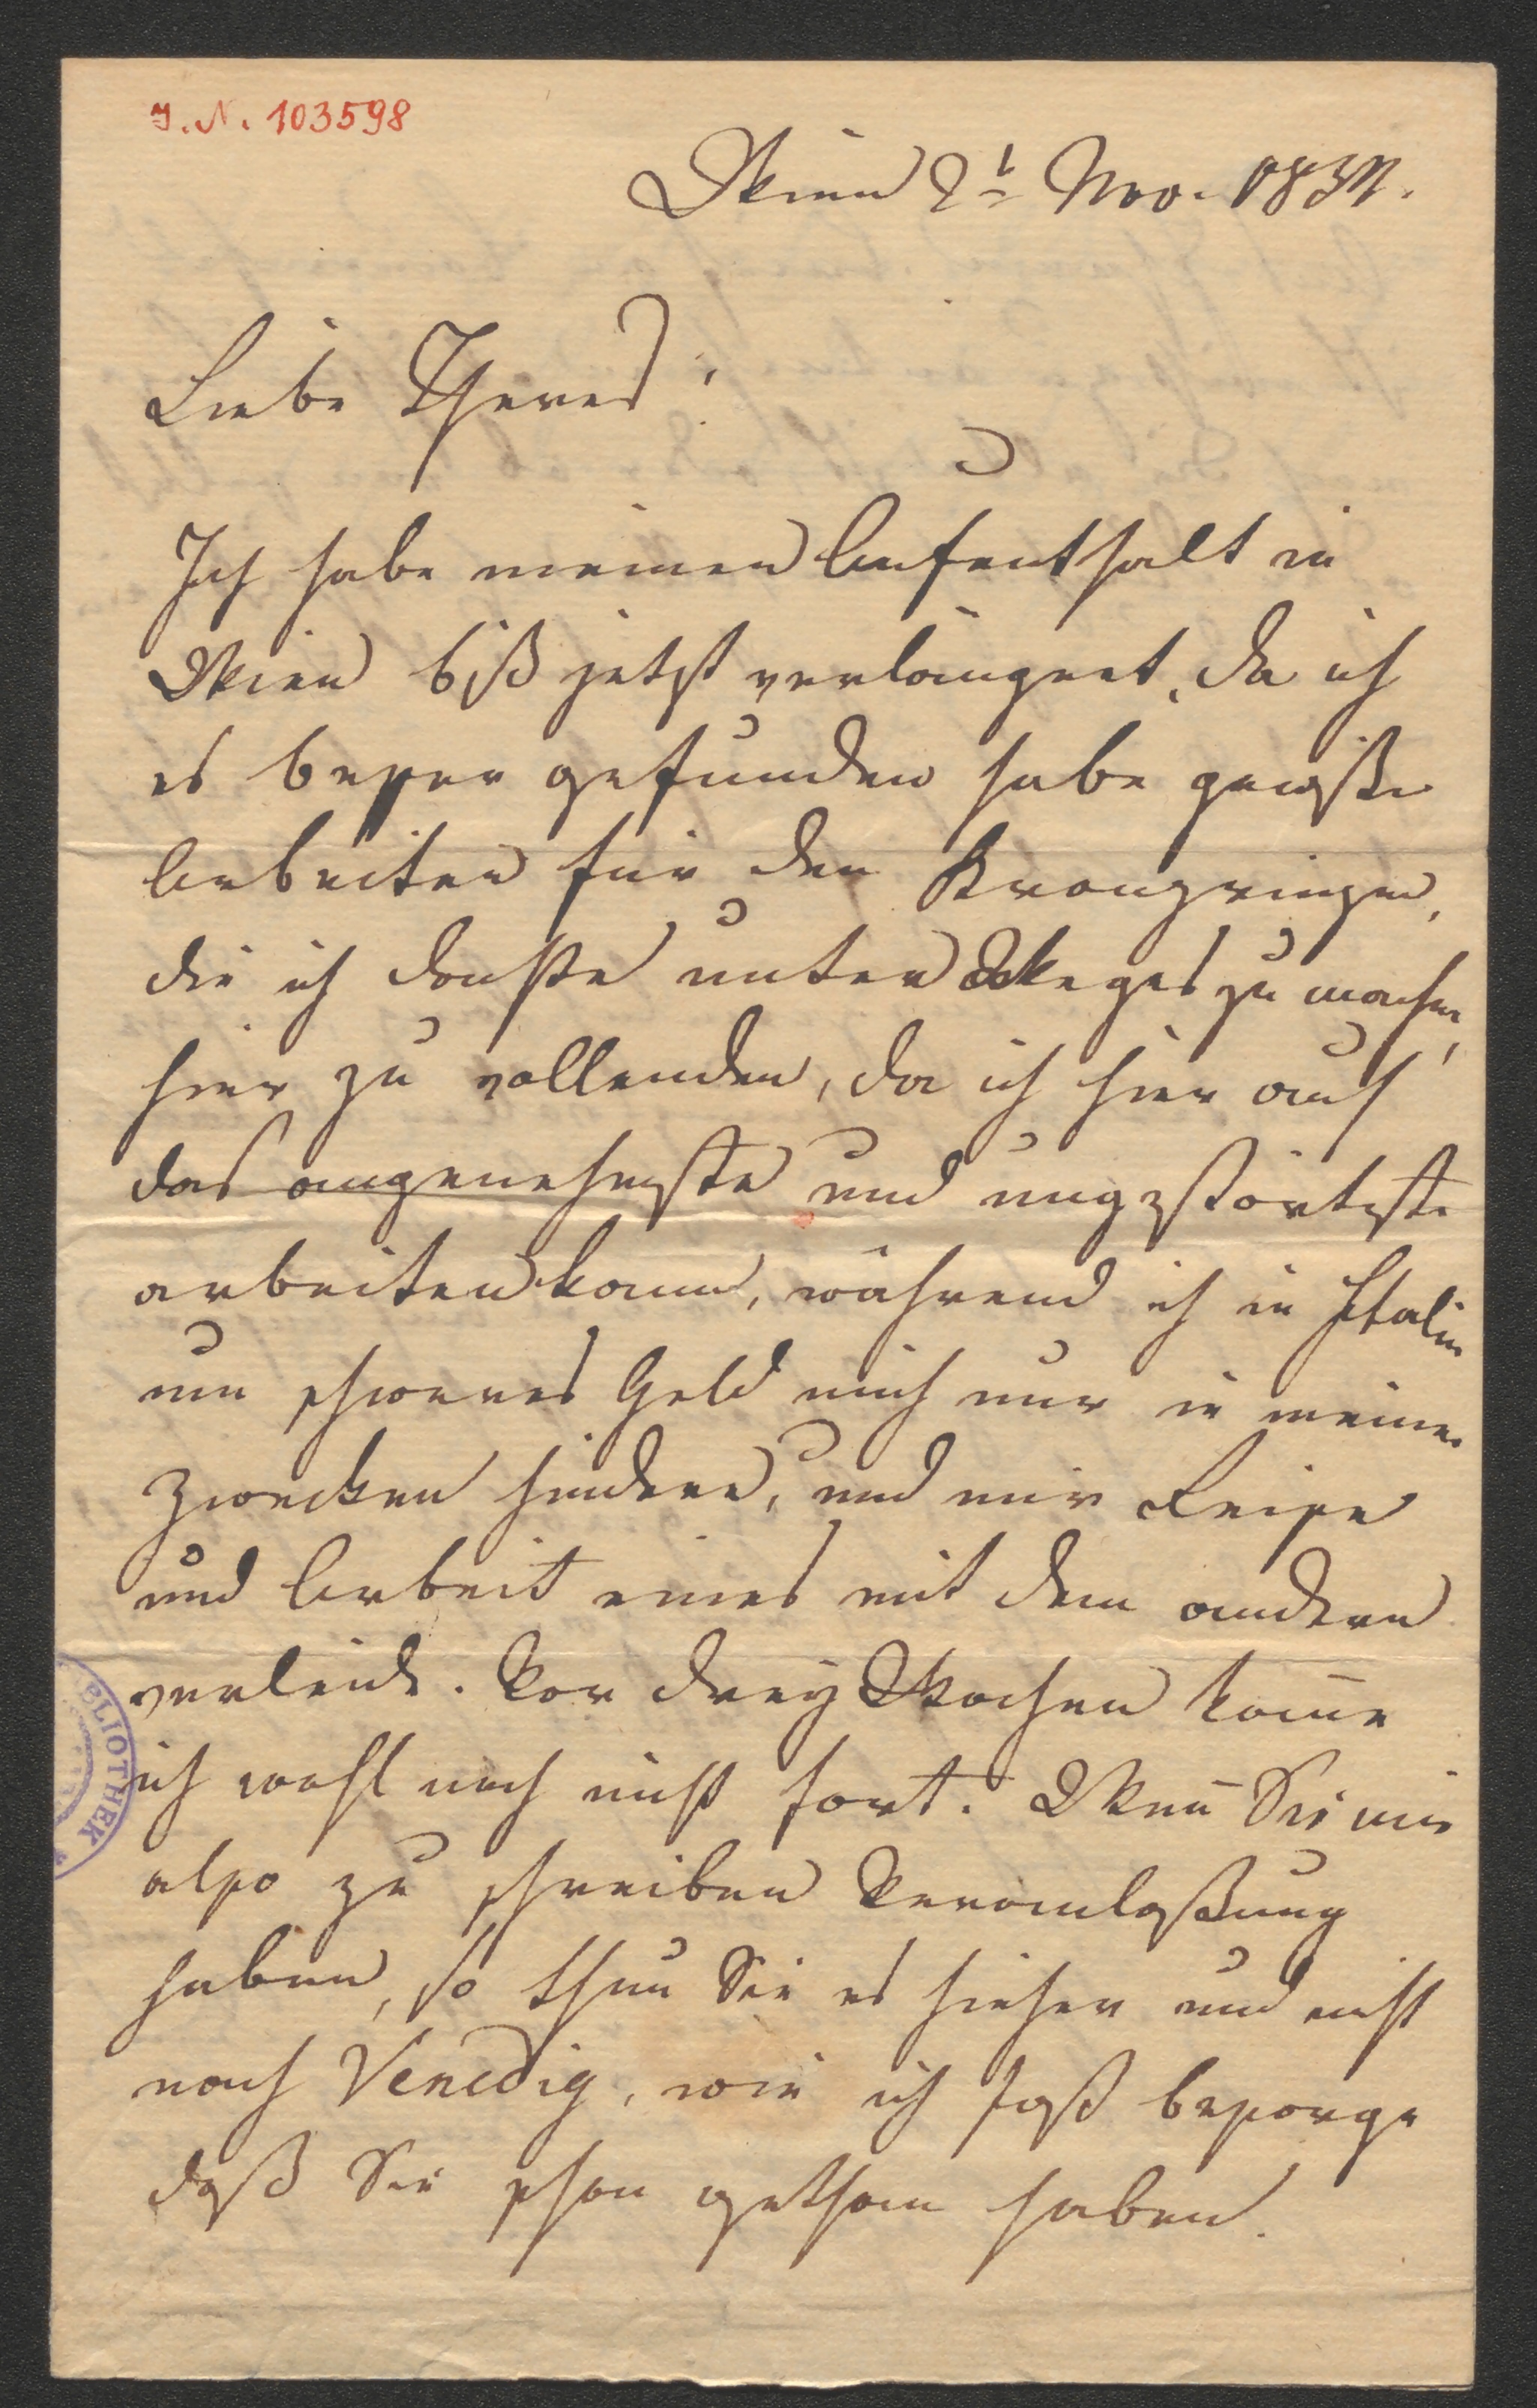 J. N. 103598
Wien 2t Nov. 1834.
Liebe Theres!
Ich habe meinen Aufenthalt in
Wien biß jetzt verlängert, da ich
es besser gefunden habe gewiße
Arbeiten für den Kronprinzen,
die ich dachte unter Weges zu machen,
hier zu vollenden, da ich hier auf
das angenehmste und ungestörteste
arbeiten kann, während ich in Italien
um schweres Geld mich nur in meinen
Zwecken hindere, und mir Reise
und Arbeit eines mit dem andern
verleide. Vor drey Wochen kome
ich wohl noch nicht fort. Wen Sie mir
also zu schreiben Veranlaßung
haben, so thun Sie es hieher und nicht
nach Venedig, wie ich fast besorge
daß Sie schon gethan haben.
BLIOTHEK